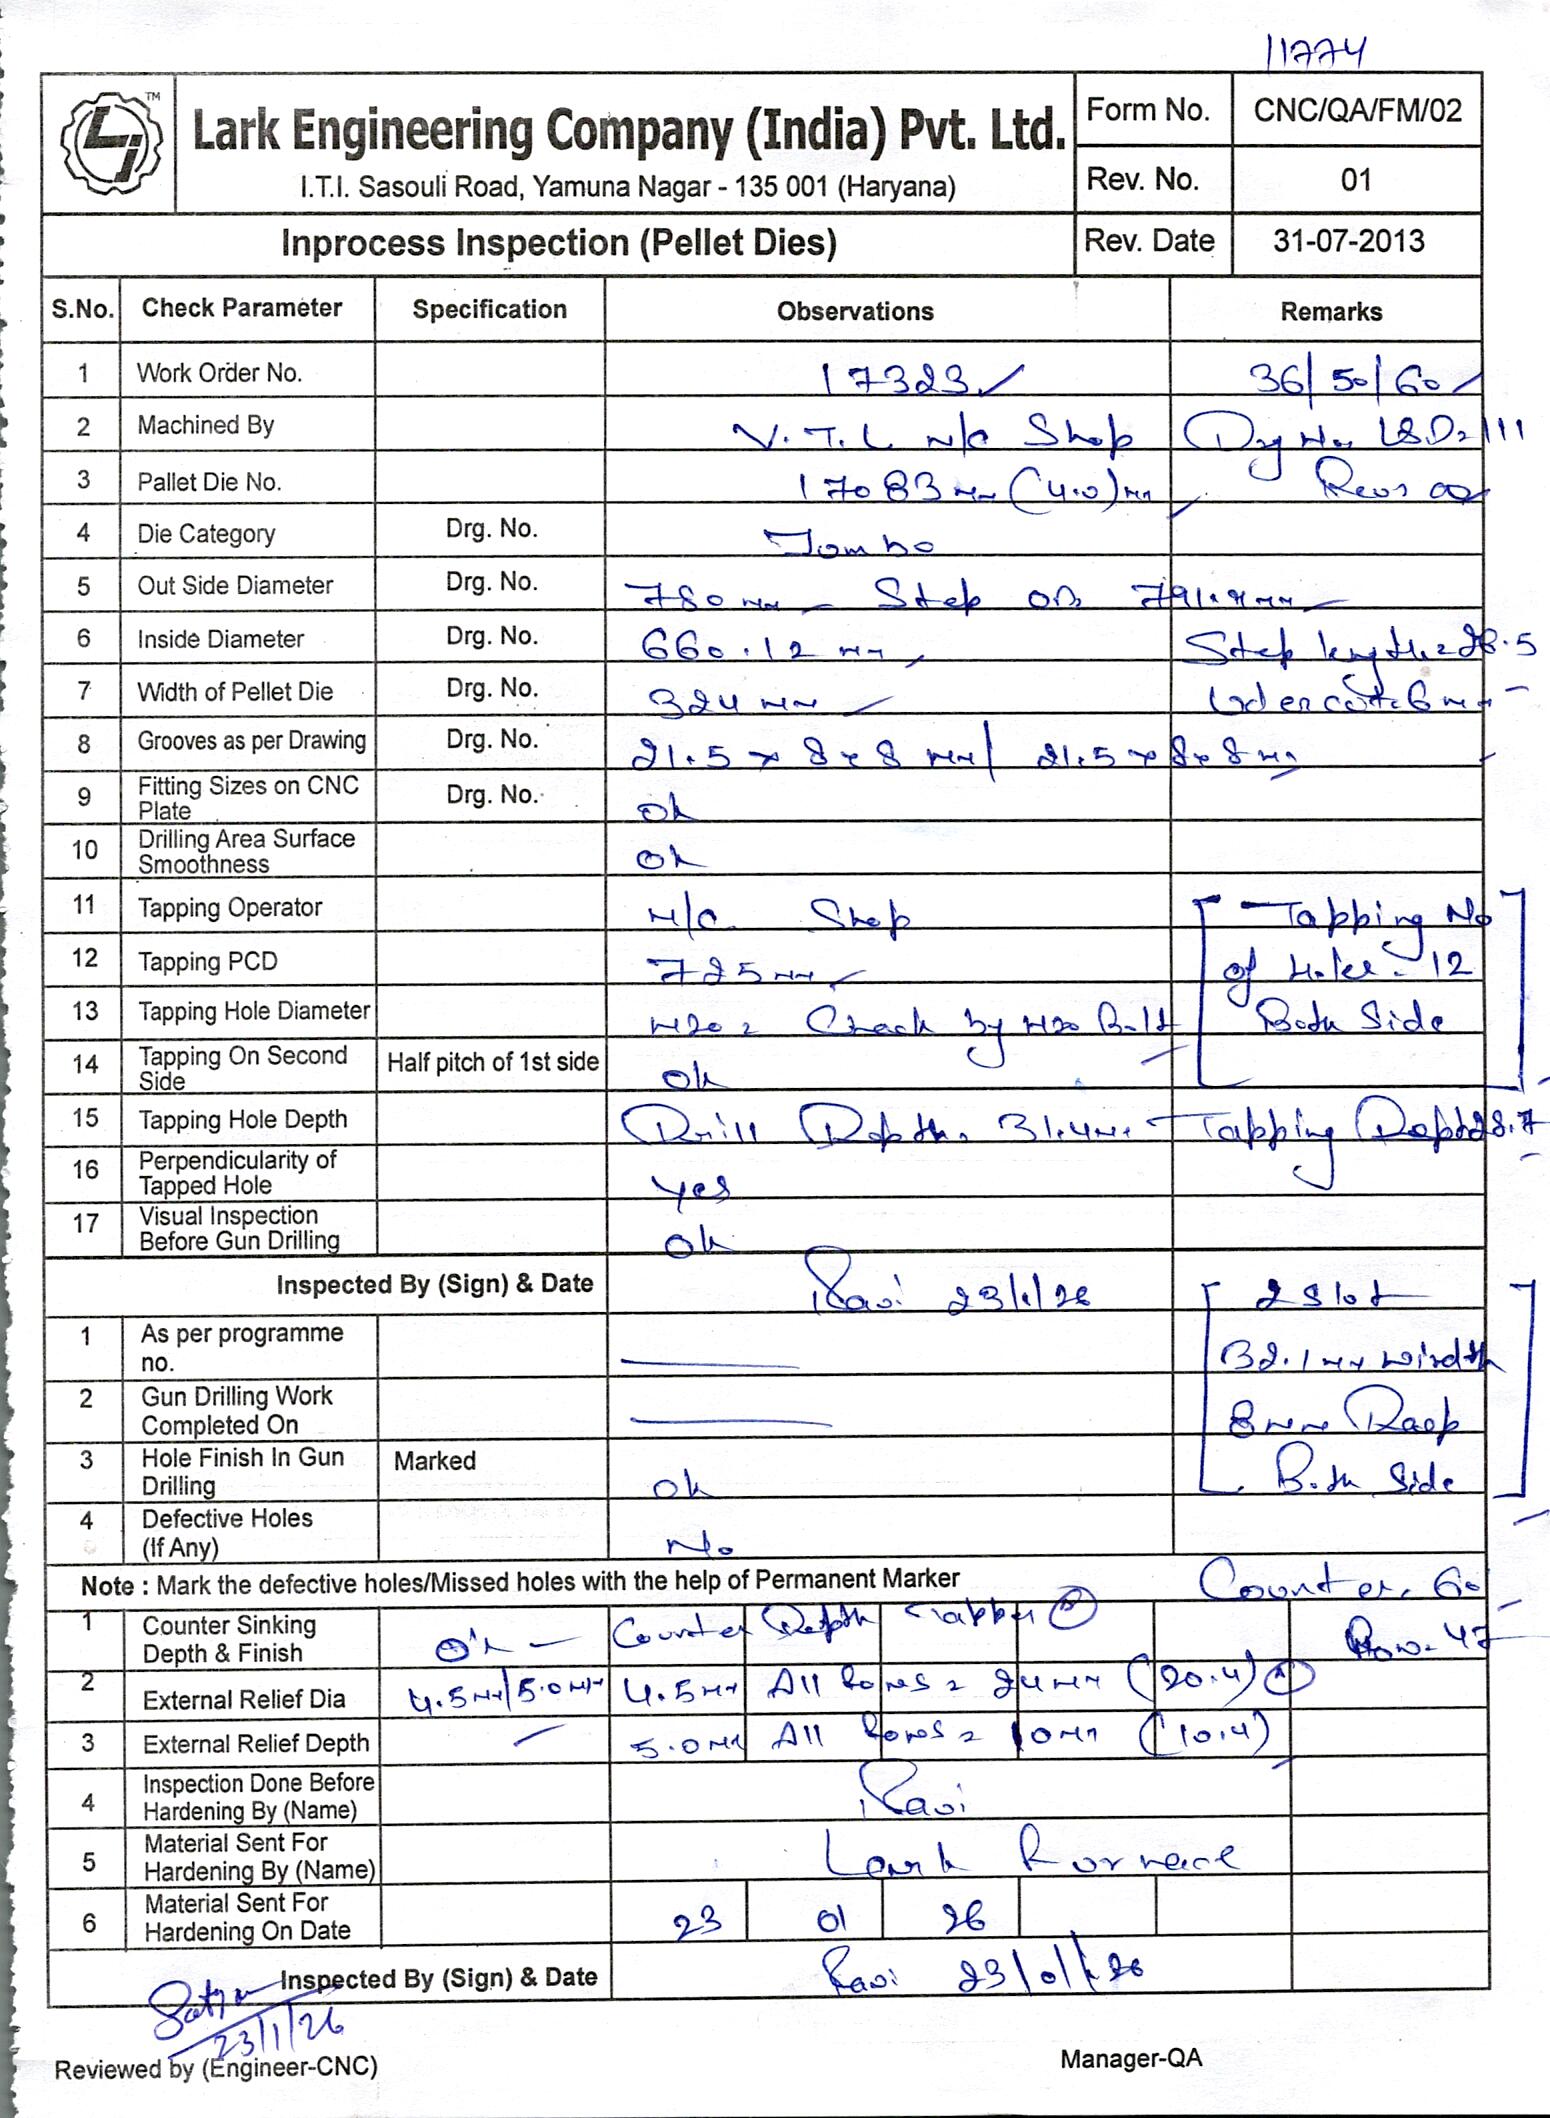 11774
TM
Lark Engineering Company (India) Pvt. Ltd.
I.T.I. Sasouli Road, Yamuna Nagar - 135 001 (Haryana)
Form No. CNC/QA/FM/02
Rev. No. 01
Inprocess Inspection (Pellet Dies)
Rev. Date 31-07-2013
S.No. Check Parameter Specification Observations Remarks
1 Work Order No. 17323 36/50/60
2 Machined By V.T.L M/C Shop
3 Pallet Die No. 17083 mm (4.0) mm
4 Die Category Drg. No. Jombo
5 Out Side Diameter Drg. No. 780 mm Step OD 791.9 mm
6 Inside Diameter Drg. No. 660.12 mm Step length = 28.5
7 Width of Pellet Die Drg. No. 324 mm Undercut 6 mm
8 Grooves as per Drawing Drg. No. 21.5 x 8 x 8 mm / 21.5 x 8 x 8 mm
9 Fitting Sizes on CNC Plate Drg. No. Ok
10 Drilling Area Surface Smoothness Ok
11 Tapping Operator M/C Shop Tapping No
12 Tapping PCD 725 mm of Holes - 12
13 Tapping Hole Diameter M20 = Check by M20 Bolt Both Side
14 Tapping On Second Side Half pitch of 1st side Ok
15 Tapping Hole Depth Drill Depth = 31.4 mm Tapping Depth 28.7
16 Perpendicularity of Tapped Hole Yes
17 Visual Inspection Before Gun Drilling Ok
Inspected By (Sign) & Date Ravi 23/1/26 2 Slot
1 As per programme no. 32.1 mm width
2 Gun Drilling Work Completed On 8 mm Deep
3 Hole Finish In Gun Drilling Marked Ok Both Side
4 Defective Holes (If Any) No
Note : Mark the defective holes/Missed holes with the help of Permanent Marker Counter. 60
1 Counter Sinking Depth & Finish Ok Counter Depth Row - 47
2 External Relief Dia 4.5 mm/5.0 mm 4.5 mm All Rows = 24 mm (20.4)
3 External Relief Depth 5.0 mm All Rows = 10 mm (10.4)
4 Inspection Done Before Hardening By (Name) Ravi
5 Material Sent For Hardening By (Name) Lark Furnace
6 Material Sent For Hardening On Date 23 01 26
Inspected By (Sign) & Date Ravi 23/01/26
23/1/26
Reviewed by (Engineer-CNC) Manager-QA